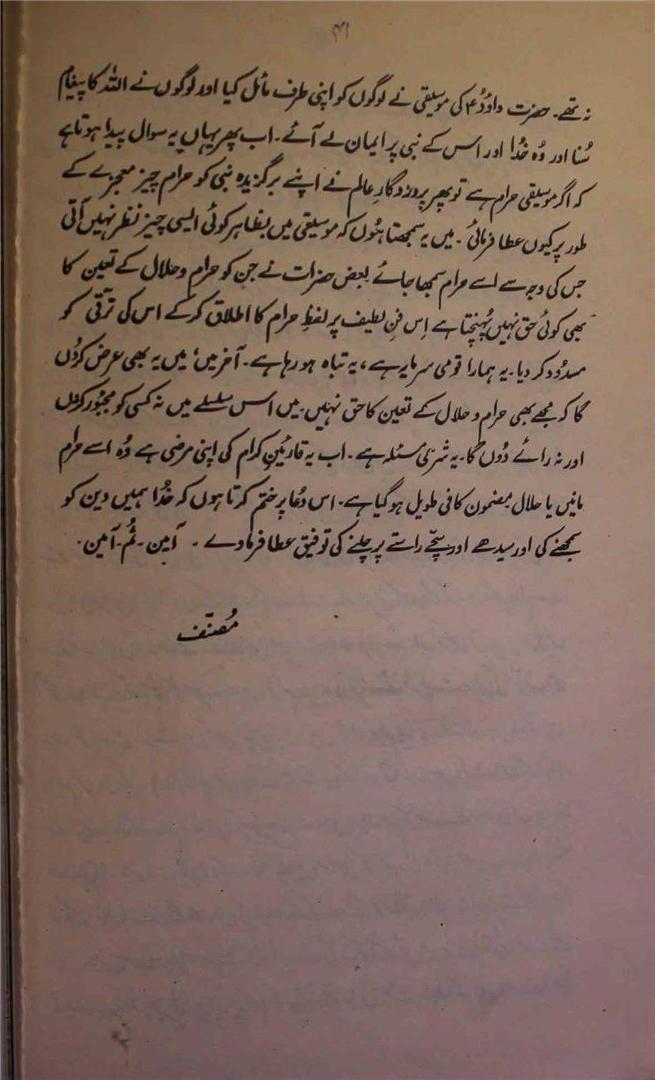 ۴۱
نہ تھے۔ حضرت داؤدؑ کی موسیقی نے لوگوں کو اپنی طرف مائل کیا اور لوگوں نے اللہ کا پیغام
سُنا اور وُہ خُدا اور اس کے نبی پر ایمان لے آئے۔ اب پھر یہاں یہ سوال پیدا ہوتا ہے
کہ اگر موسیقی حرام ہے تو پھر پروردگارِ عالم نے اپنے برگزیدہ نبی کو حرام چیز معجزے کے
طور پر کیوں عطا فرمائی۔ میں یہ سمجھتا ہُوں کہ موسیقی میں بظاہر کوئی ایسی چیز نظر نہیں آتی
جس کی وجہ سے اسے حرام سمجھا جائے بعض حضرات نے جن کو حرام و حلال کے تعین کا
بھی کوئی حق نہیں پُہنچتا ہے اِس فنِ لطیف پر لفظِ حرام کا اطلاق کرکے اس کی ترّقی کو
مسدُود کر دیا۔ یہ ہمارا قومی سرمایہ ہے، یہ تباہ ہو رہا ہے۔ آخر میں، میں یہ بھی عرض کرُوں
گا کہ مُجھے بھی حرام و حلال کے تعین کا حق نہیں۔ میں اس سلسلے میں نہ کسی کو مجبُور کرُوں
اور نہ رائے دُوں گا۔ یہ شرعی مسئلہ ہے۔ اب یہ قارئینِ کرام کی اپنی مرضی ہے وُہ اسے حرام
مانیں یا حلال مضمون کافی طویل ہو گیا ہے۔ اس دُعا پر ختم کرتا ہوں کہ خُدا ہمیں دین کو
سمجھنے کی اور سیدھے اور سچّے راستے پر چلنے کی توفیق عطا فرما دے ۔ آمین۔ ثُم۔ آمین۔
مُصنّف